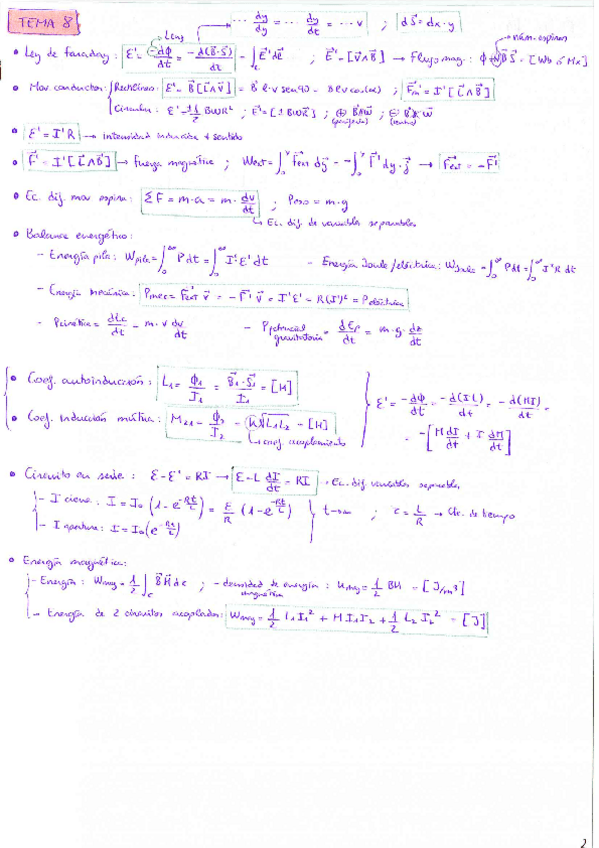 TEMA 8
... dy/dy = ... dy/dt = ... v ; dS = dx · y
Lenz
Núm. espiras
• Ley de faraday: E' = -dϕ/dt = -d(B⃗·S⃗)/dt = ∫ E⃗' dl⃗ ; E⃗' = [v⃗∧B⃗] → Flujo mag: ϕ = N B⃗ S⃗ = [Wb ó Mx]
• Mov. conductor: Rectilíneo: E' = B⃗[L⃗∧v⃗] = B·l·v sen90 = Blv cos(α) ; F⃗m' = I'[L⃗∧B⃗]
Circular: E' = 1/2 BWR² ;
• E' = I'R → intensidad inducida + sentido
• F⃗' = I'[L⃗∧B⃗] → Fuerza magnética ; Wext = ∫ F⃗ext dy⃗ = -∫ F⃗' dy · y⃗ → F⃗ext = -F⃗'
• Ec. dif. mov espira: ΣF = m·a = m · dv/dt ; Peso = m·g
↳ Ec. dif. de variables separables
• Balance energético:
- Energía pila: Wpila = ∫₀^∞ P dt = ∫₀^∞ I' E' dt - Energía Joule/eléctrica: WJoule = ∫₀^∞ P dt = ∫₀^∞ I²R dt
- Energía mecánica: Pmec = F⃗ext v⃗ = -F⃗' v⃗ = I'E' = R(I')² = Peléctrica
- Pcinética = dEc/dt = m · v dv/dt - Ppotencial gravitatoria = dEp/dt = m·g · dz/dt
• Coef. autoinducción: L₁ = ϕ₁/I₁ = B⃗₁·S⃗₁/I₁ = [H]
E' = -dϕ/dt = -d(IL)/dt = -d(MI)/dt =
• Coef. inducción mútua: M₂₁ = ϕ₂/I₂ = K√L₁L₂ = [H]
= -[M dI/dt + I dM/dt]
↳ coef. acoplamiento
• Circuito en serie: E - E' = RI → E - L dI/dt = RI → Ec. dif. variables separables
- I cierre: I = I₀ (1 - e^(-Rt/L)) = E/R (1 - e^(-Rt/L)) t→∞ ; τ = L/R → Cte. de tiempo
- I apertura: I = I₀ (e^(-Rt/L))
• Energía magnética:
- Energía: Wmag = 1/2 ∫ B⃗ H⃗ dτ ; - densidad de energía magnética: umag = 1/2 BH = [J/m³]
- Energía de 2 circuitos acoplados: Wmag = 1/2 L₁I₁² + M I₁I₂ + 1/2 L₂I₂² = [J]
2